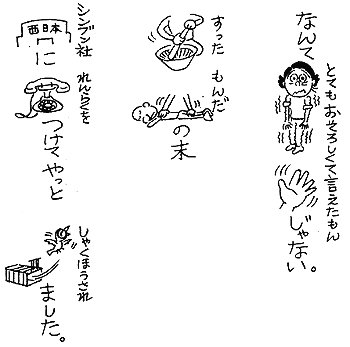 なんて
とてもおそろしくて言えたもん
じゃない。
すった
もんだ
の末
シンブン社
西日本
に
れんらくを
つけてやっと
しゃくほうされ
ました。